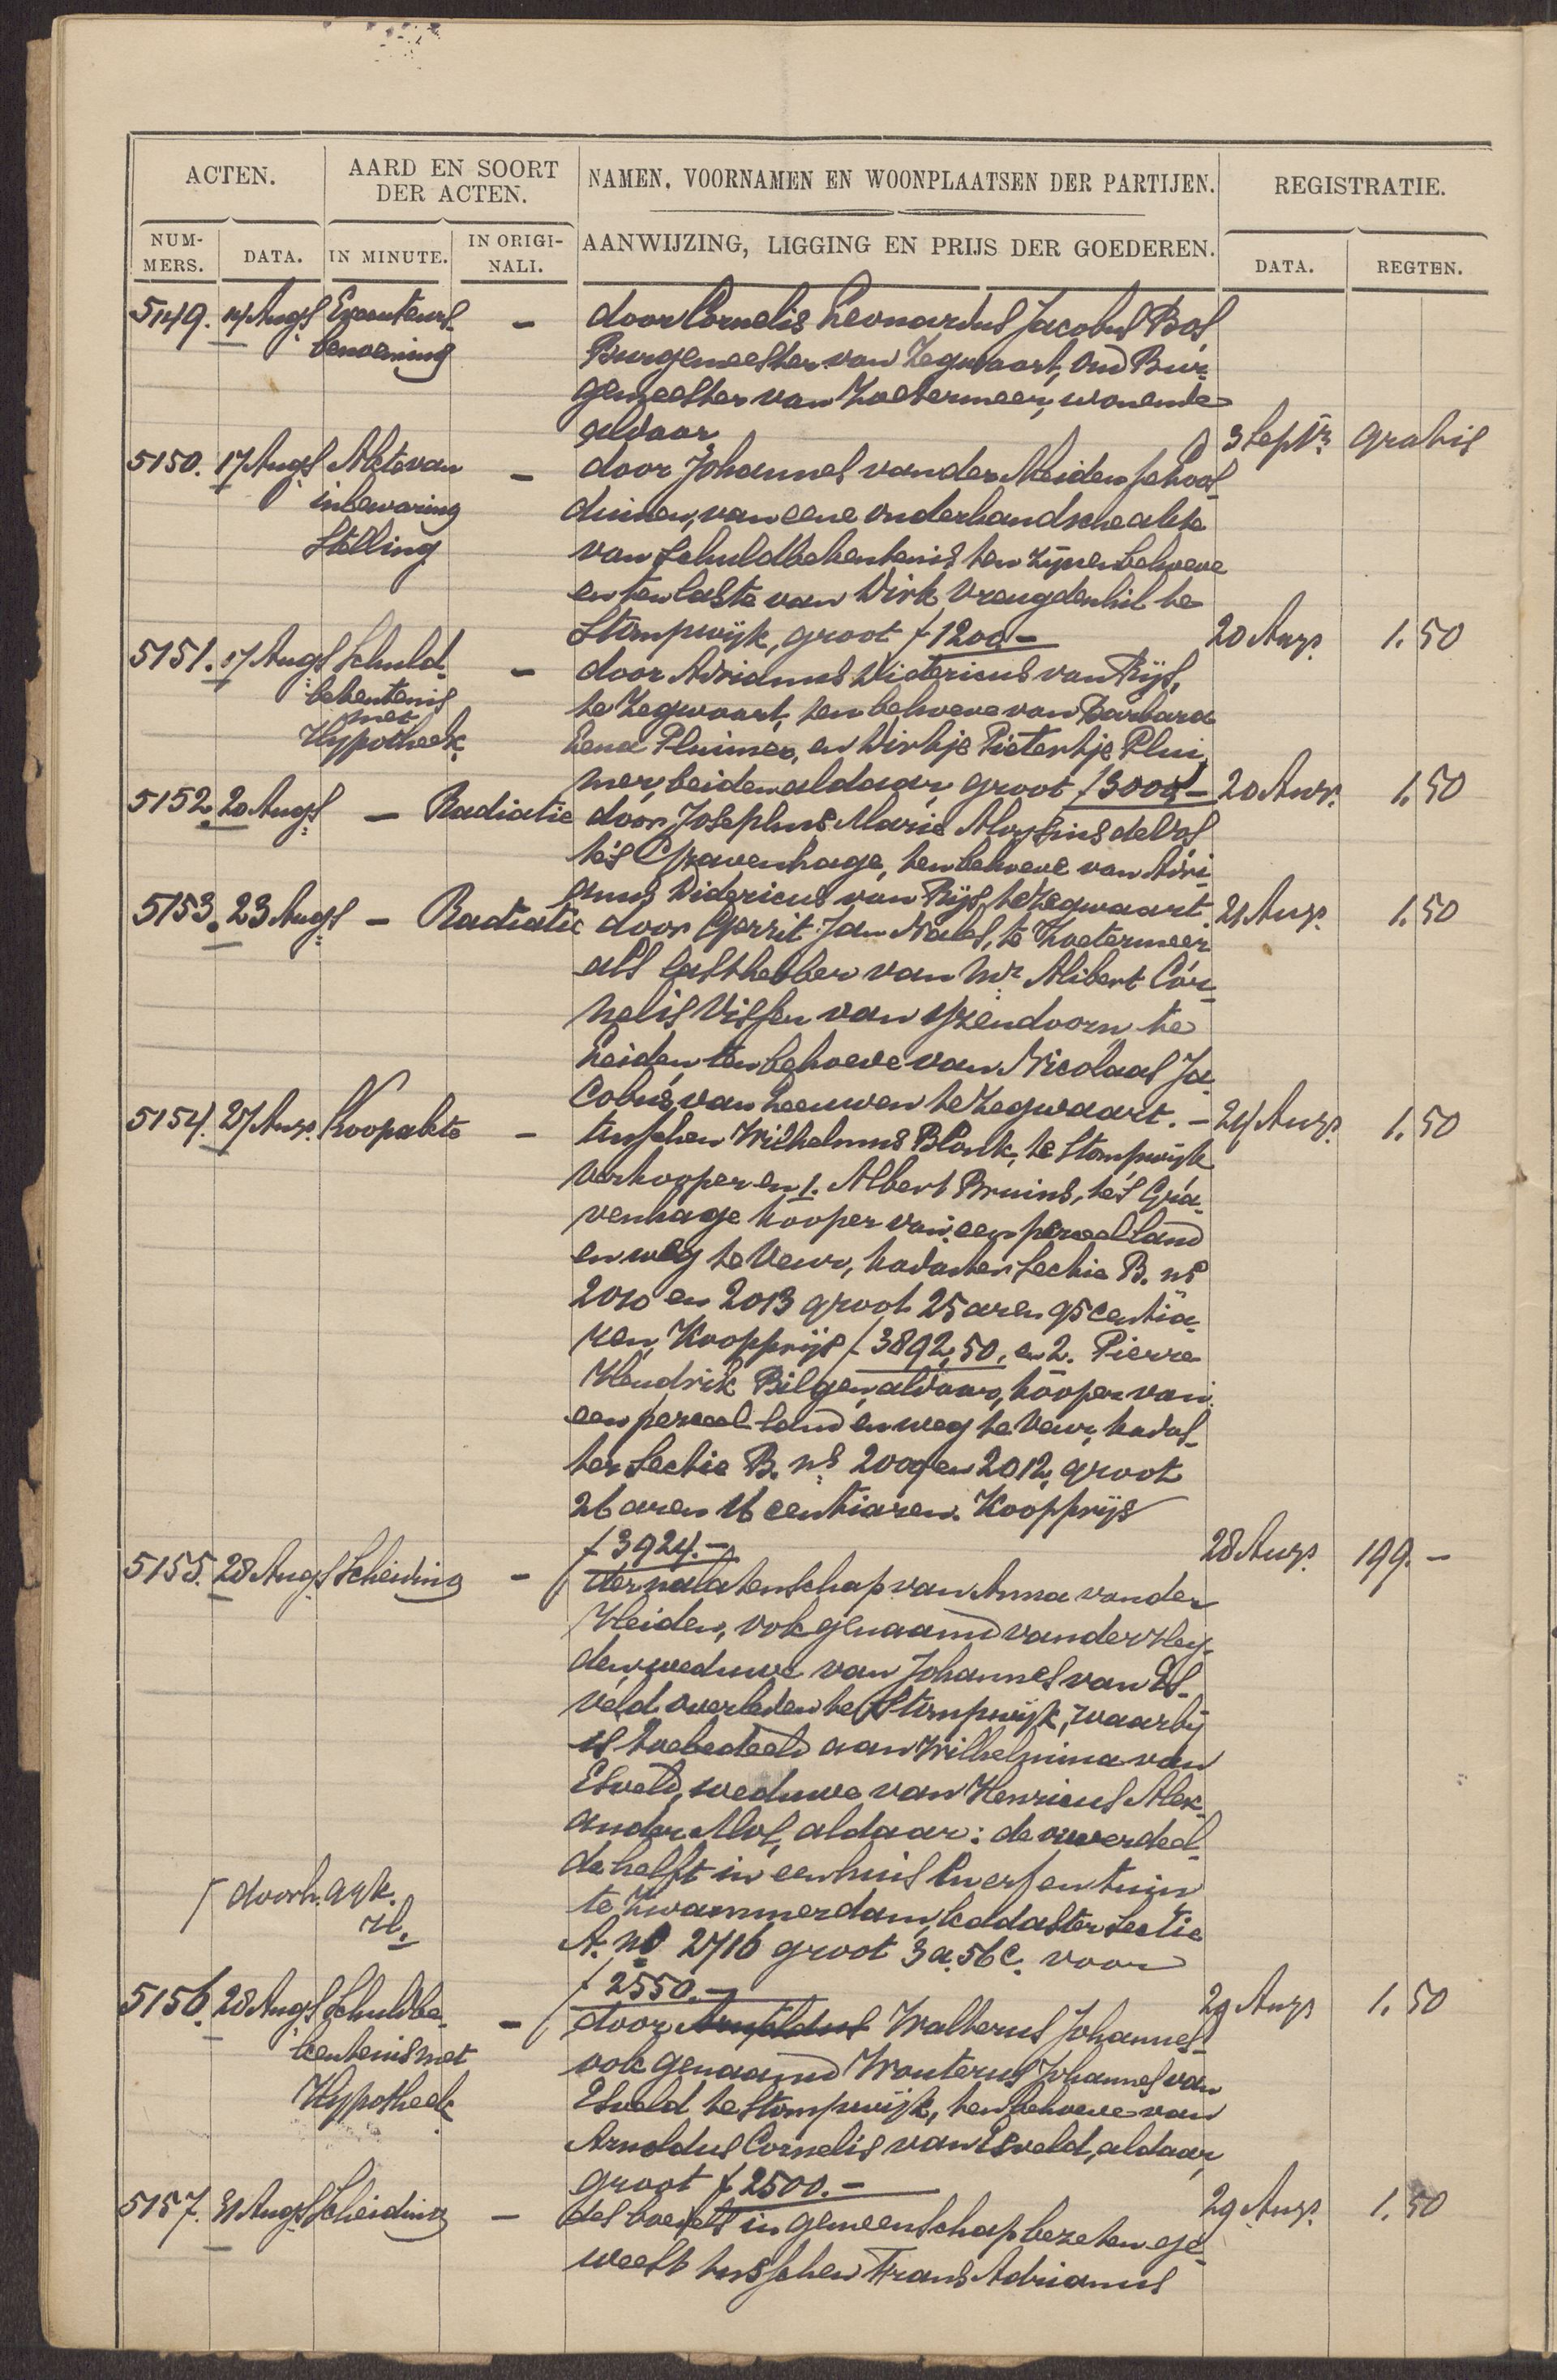 ACTEN.
AARD EN SOORT
DER ACTEN.
NAMEN, VOORNAMEN EN WOONPLAATSEN DER PARTIJEN.
REGISTRATIE.
NUM-
MERS.
DATA.
IN MINUTE.
IN ORIGI-
NALI.
AANWIJZING, LIGGING EN PRIJS DER GOEDEREN.
DATA.
REGTEN.
5149. 14 Augs Executeurs- – door Cornelis Leonardus Jacobus Bos,
benoeming Burgemeester van Zegwaart, oud Bur-
gemeester van Zoetermeer, wonende
aldaar. 3 Septr. gratis
5150. 17 Augs Akte van – door Johannes van der Meiden, te Loos-
inbewaring duinen, van eene onderhandsche akte
Stelling van Schuldbekentenis ten zijnen behoeve
en ten laste van Dirk Vreugdenhil te
Stompwijk, groot f 1200.– 20 Augs. 1.50
5151. 17 Augs Schuld- – door Adrianus Didericus van Rijs,
bekentenis te Zegwaart, ten behoeve van Barbara
met
Hypotheek Lena Pluimer, en Dirkje Pietertje Plui-
mer, beiden aldaar, groot f 3000.– 20 Augs. 1.50
5152. 20 Augs – Radiatie door Josephus Maria Aloysius de Vos
te 's Gravenhage, ten behoeve van Adri-
anus Didericus van Rijs, te Zegwaart 21 Augs. 1.50
5153. 23 Augs – Radiatie door Gerrit Jan Nales, te Zoetermeer
als lasthebber van Mr. Alibert Cor-
nelis Visser van IJzendoorn, te
Leiden, ten behoeve van Nicolaas Ja-
cobus van Leeuwen te Zegwaart. – 24 Augs. 1.50
5154. 27 Augs. Koopakte – tusschen Wilhelmus Blonk, te Stompwijk
verkooper en 1. Albert Bruins, te 's Gra-
venhage kooper van een perceel land
en weg te Veur, kadaster Sectie B. ns
2010 en 2013 groot 25 aren 95 centia-
ren, Koopprijs f 3892,50, en 2. Pierre
Hendrik Bilgen, aldaar, kooper van
een perceel land en weg te Veur, kadas-
ter Sectie B. ns 2009 en 2012, groot
26 aren 16 centiaren. Koopprijs
f 3924.– 28 Augs. 199.–
5155. 28 Augs Scheiding – der nalatenschap van Anna van der
Heiden, ook genaamd van der Hey-
den, weduwe van Johannes van Es-
veld, overleden te Stompwijk, waarbij
is toebedeeld aan Wilhelmina van
Esveld, weduwe van Henricus Alex-
ander Mos, aldaar: de onverdeel-
de helft in een huis en erf en tuin
te Zwammerdam, kadaster Sectie
A. no 2716 groot 3 a. 56 c. voor
f 2550.– 29 Augs 1.50
doorh. agk.
H.
5156. 28 Augs Schuldbe- – door Arnoldus Waltherus Johannes-
kentenis met ook genaamd Wouterus Johannes van
Hypotheek Esveld te Stompwijk, ten behoeve van
Arnoldus Cornelis van Esveld, aldaar,
groot f 2500.– 29 Augs. 1.50
5157. 31 Augs Scheiding – des boedels in gemeenschap bezeten ge-
weest tusschen Frans Adrianus